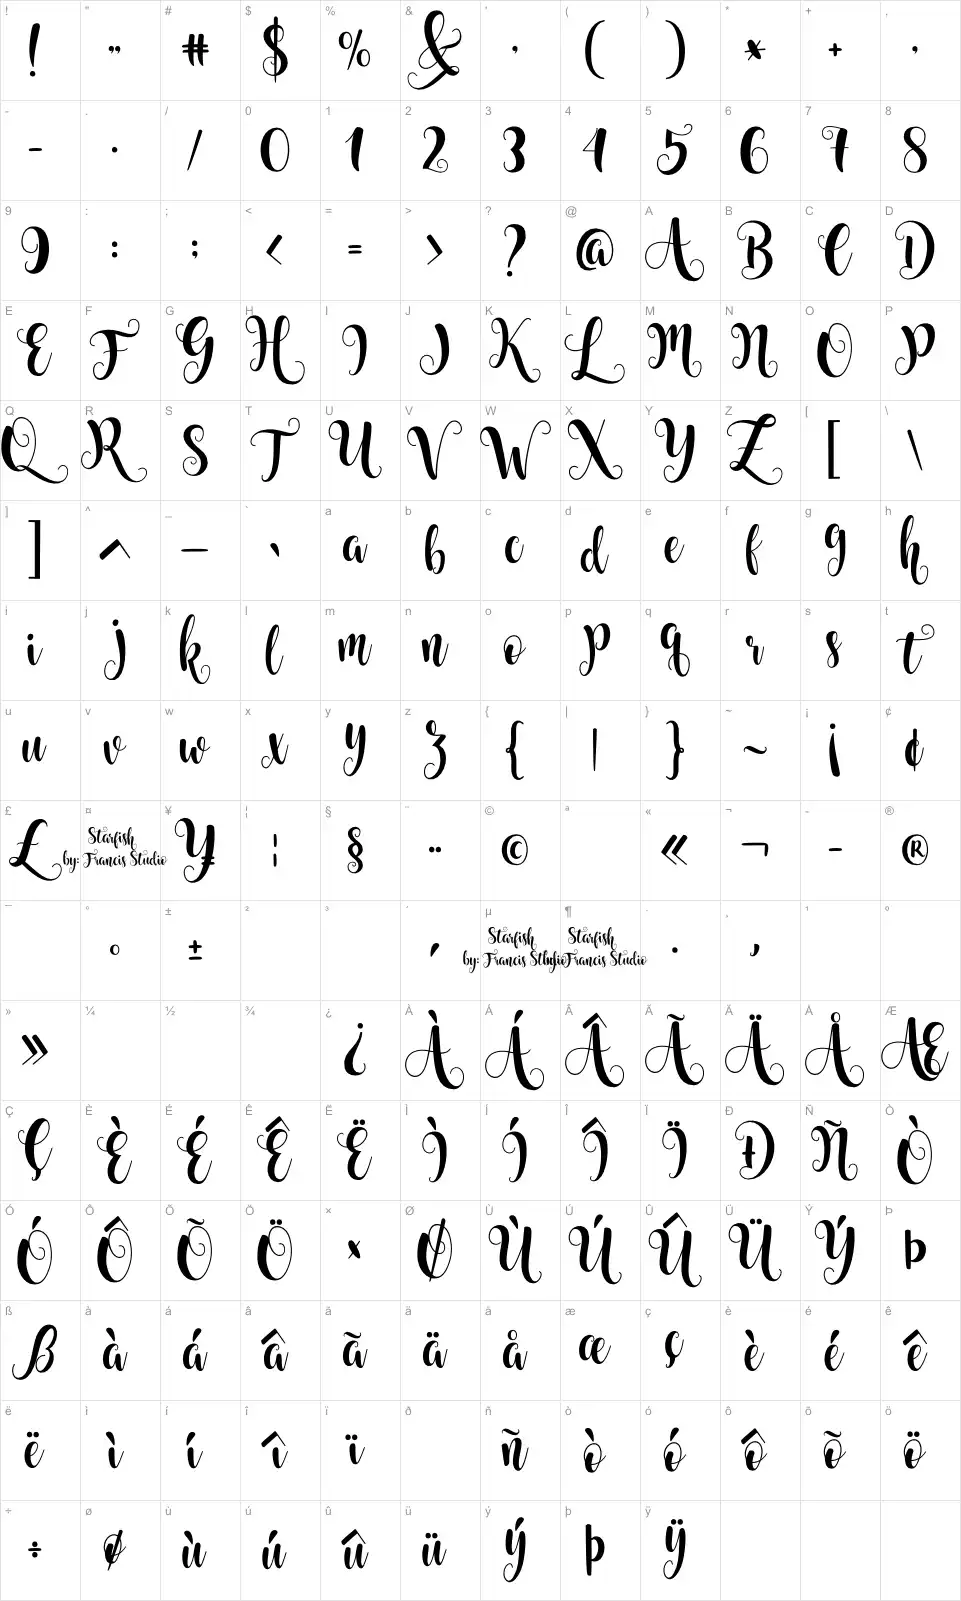 ! " # $ % & ' ( ) * + ,
! " # $ % & ' ( ) * + ,
- . / 0 1 2 3 4 5 6 7 8
- . / 0 1 2 3 4 5 6 7 8
9 : ; < = > ? @ A B C D
9 : ; < = > ? @ A B C D
E F G H I J K L M N O P
E F G H I J K L M N O P
Q R S T U V W X Y Z [ \
Q R S T U V W X Y Z [ \
] ^ _ ` a b c d e f g h
] ^ _ ` a b c d e f g h
i j k l m n o p q r s t
i j k l m n o p q r s t
u v w x y z { | } ~ ¡ ¢
u v w x y z { | } ~ ¡ ¢
£ ¤ ¥ ¦ § ¨ © ª « ¬ ®
£ Starfish ¥ ¦ § ¨ © « ¬ - ®
by: Francis Studio
¯ ° ± ² ³ ´ µ ¶ · ¸ ¹ º
° ± ´ Starfish Starfish · ¸
by: Francis Studio by: Francis Studio
» ¼ ½ ¾ ¿ À Á Â Ã Ä Å Æ
» ¿ À Á Â Ã Ä Å Æ
Ç È É Ê Ë Ì Í Î Ï Ð Ñ Ò
Ç È É Ê Ë Ì Í Î Ï Ð Ñ Ò
Ó Ô Õ Ö × Ø Ù Ú Û Ü Ý Þ
Ó Ô Õ Ö × Ø Ù Ú Û Ü Ý Þ
ß à á â ã ä å æ ç è é ê
ß à á â ã ä å æ ç è é ê
ë ì í î ï ð ñ ò ó ô õ ö
ë ì í î ï ñ ò ó ô õ ö
÷ ø ù ú û ü ý þ ÿ
÷ ø ù ú û ü ý þ ÿ